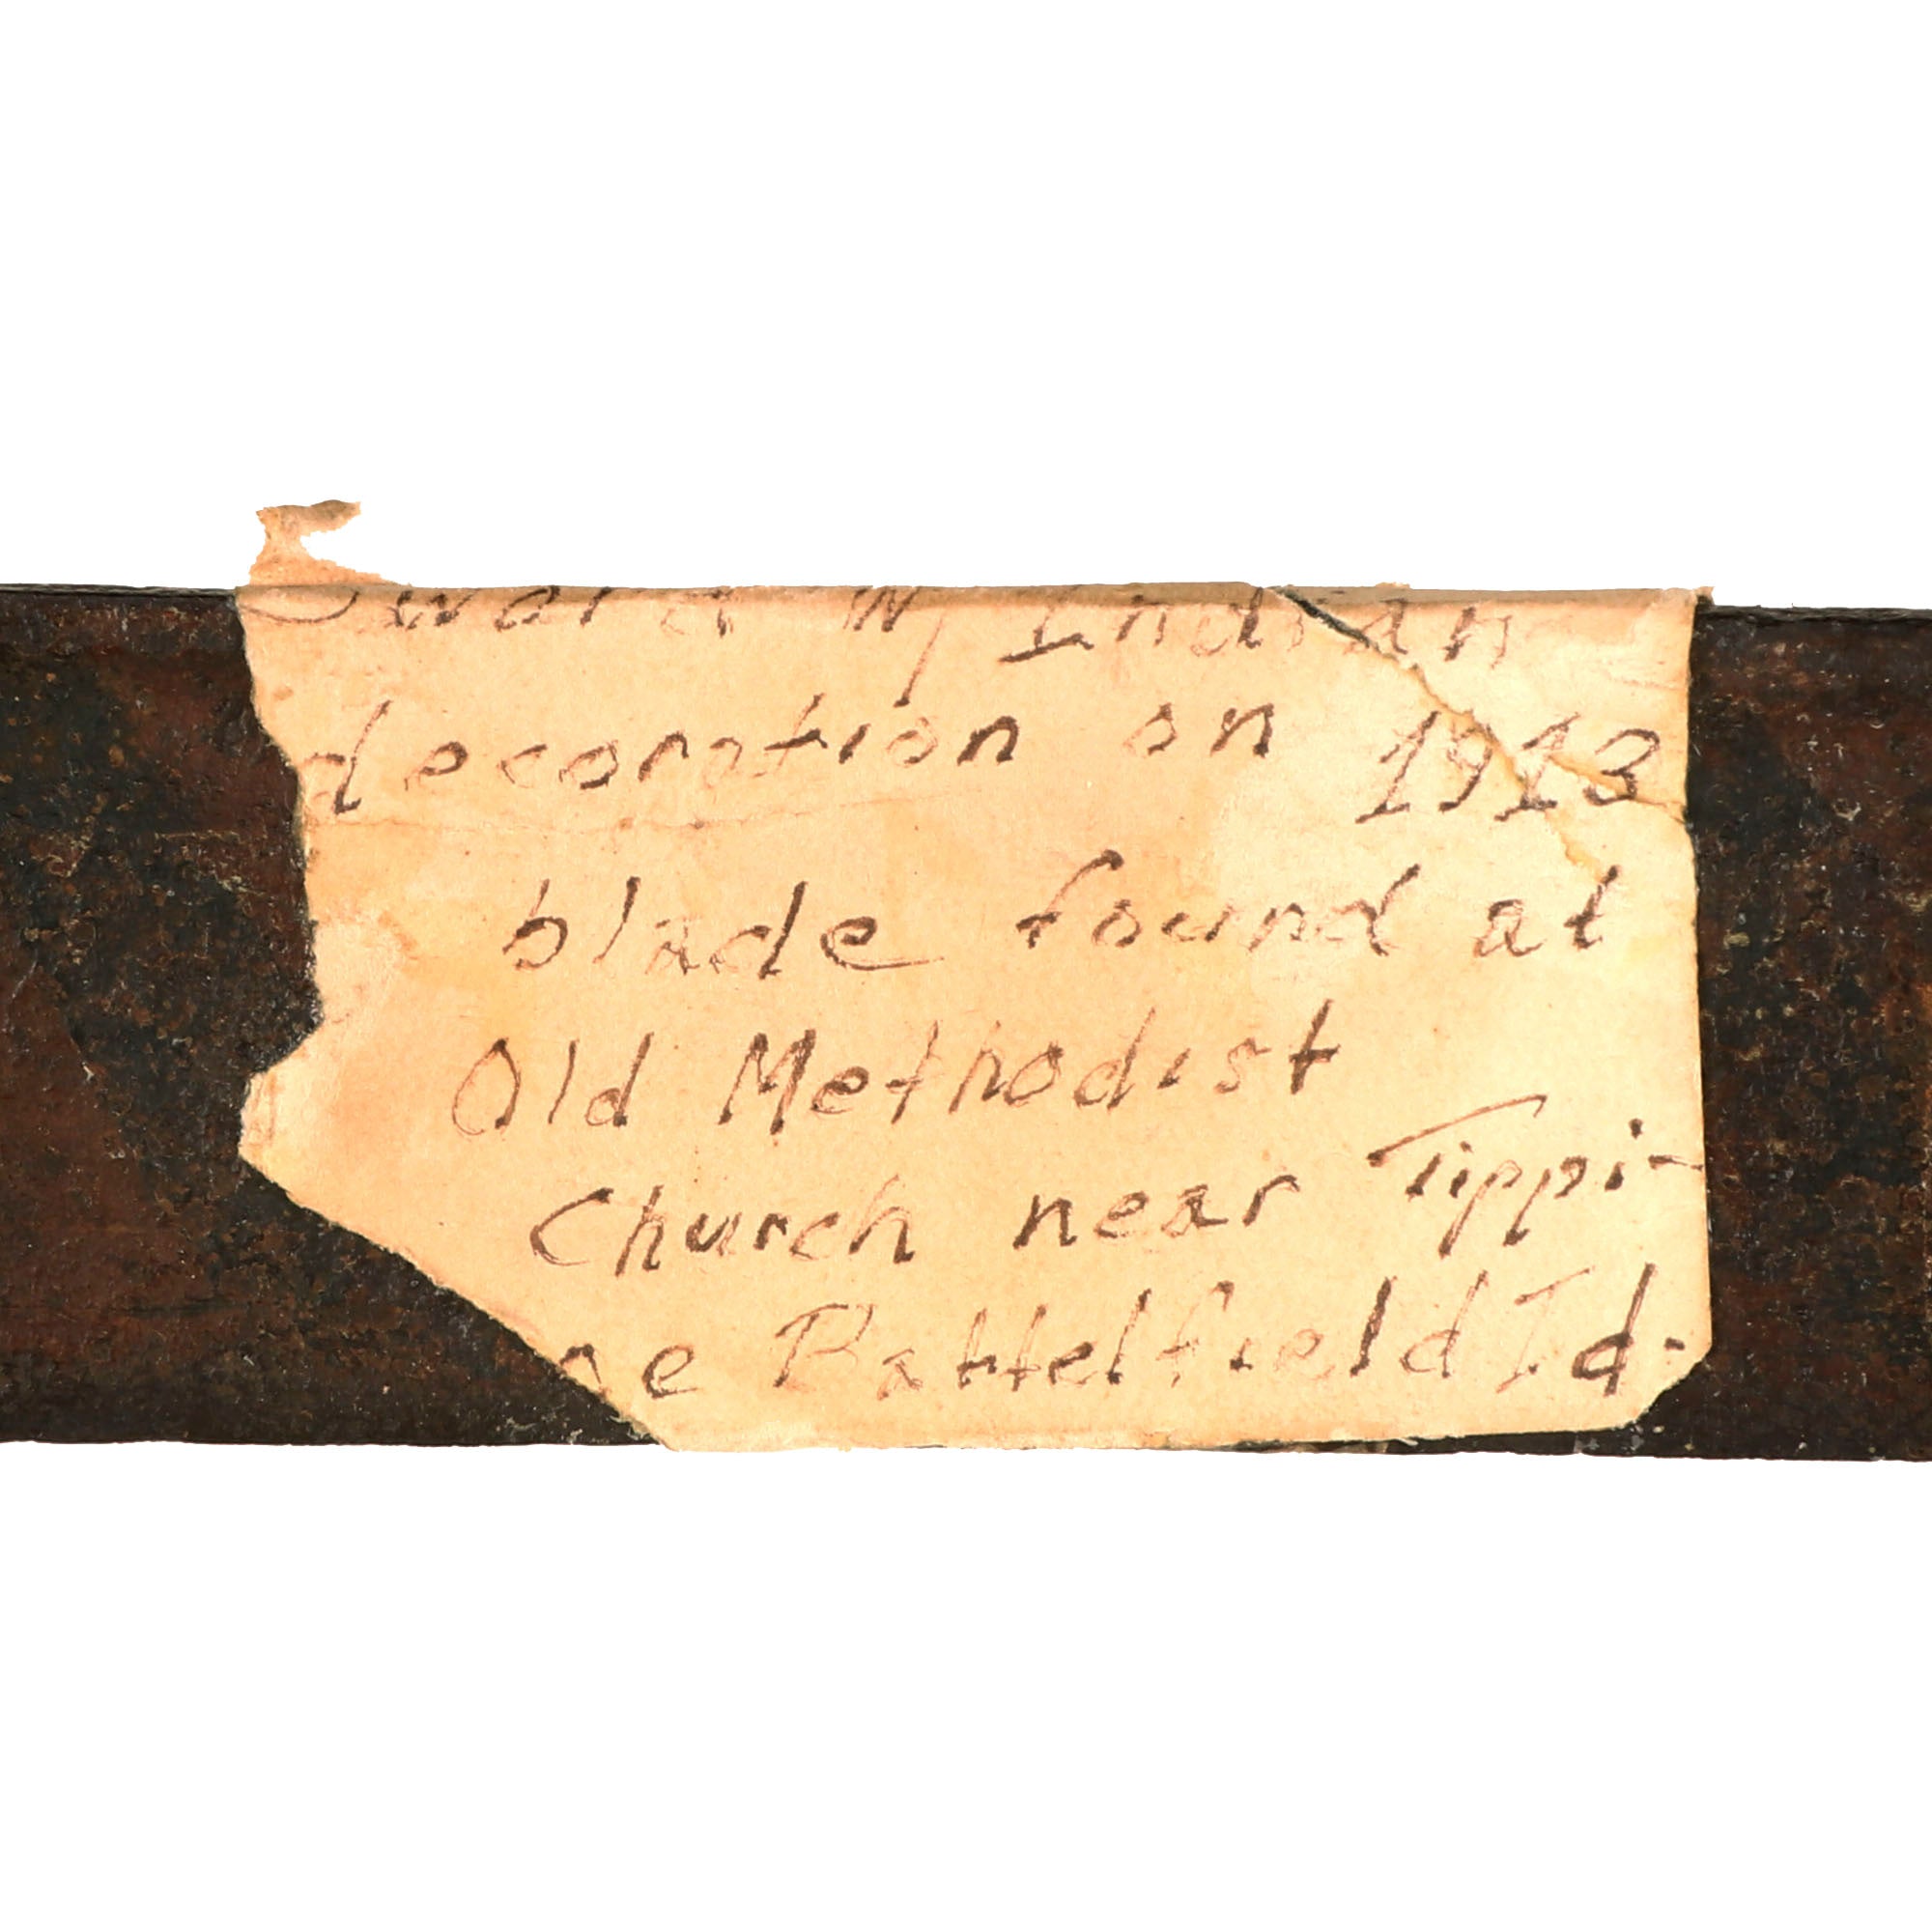 Sword w/ Indian
decoration on 1913
blade found at
Old Methodist
Church near Tippi-
ne Battelfield Id.